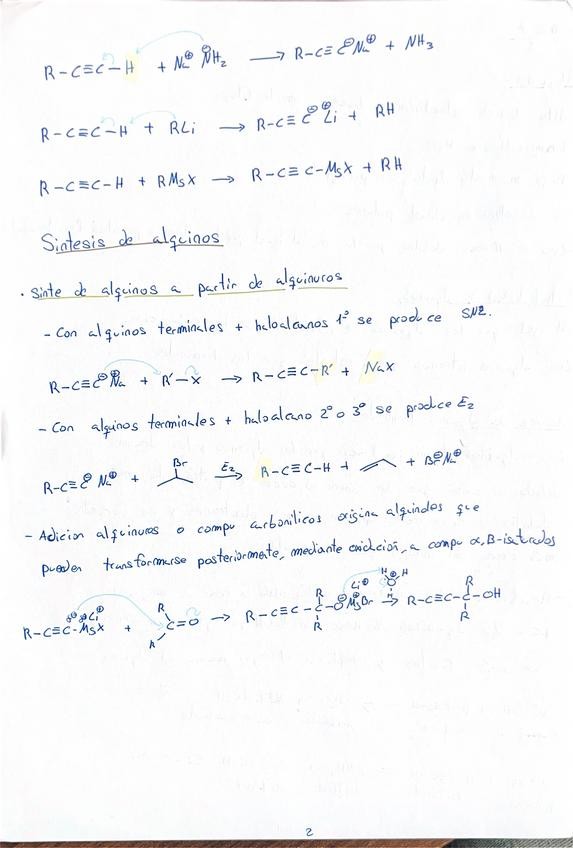 R-C≡C-H + Na⊕ ⊖NH₂ → R-C≡C⊖Na⊕ + NH₃
R-C≡C-H + RLi → R-C≡C⊖ Li⊕ + RH
R-C≡C-H + RMgX → R-C≡C-MgX + RH
Sintesis de alquinos
· Sinte de alquinos a partir de alquinuros
- Con alquinos terminales + haloalcanos 1º se produce SN2.
R-C≡C⊖ Na⊕ + R'-X → R-C≡C-R' + NaX
- Con alquinos terminales + haloalcano 2º o 3º se produce E₂
Br
R-C≡C⊖ Na⊕ + E₂ → R-C≡C-H + + Br⊖Na⊕
- Adicion alquinuros o compu carbonilicos origina alquindes que
pueden transformarse posteriormente, mediante oxidación, a compu α,B-isaturados
R-C≡C-MgX Li⊕ + R R C=O → R-C≡C-C-O⊖ MgBr Li⊕ R R H O H H → R-C≡C-C-OH R R
2